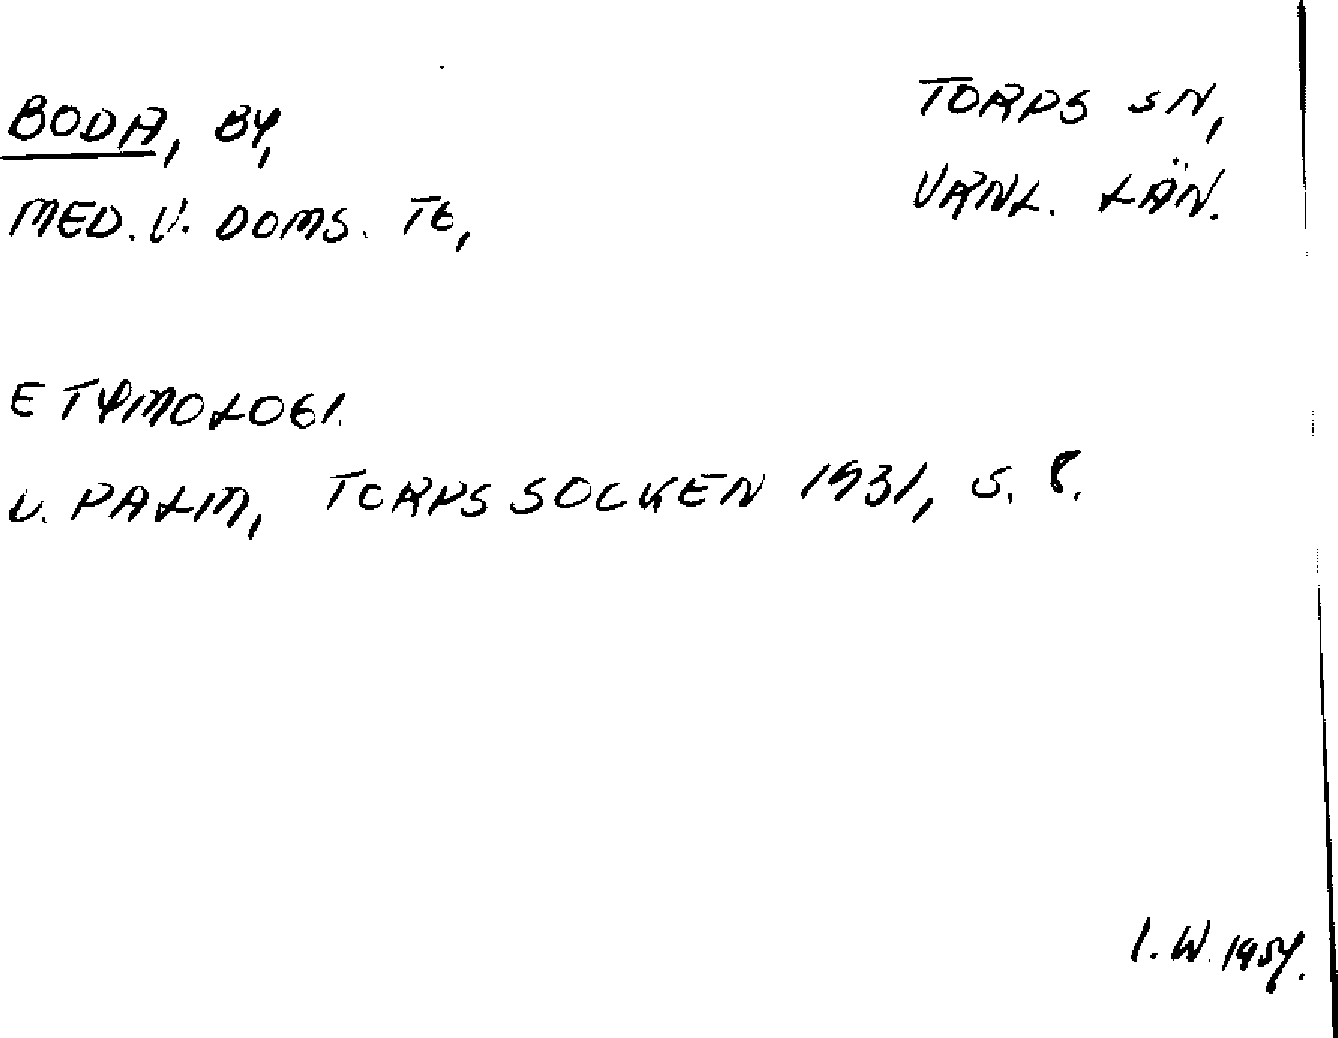 BODA, BY,
TORPS SN,
MED. V. DOMS. TG,
VRNL. LÄN.
ETYMOLOGI.
V. PALM, TORPS SOCKEN 1931, S. 8.
I. W. 1954.